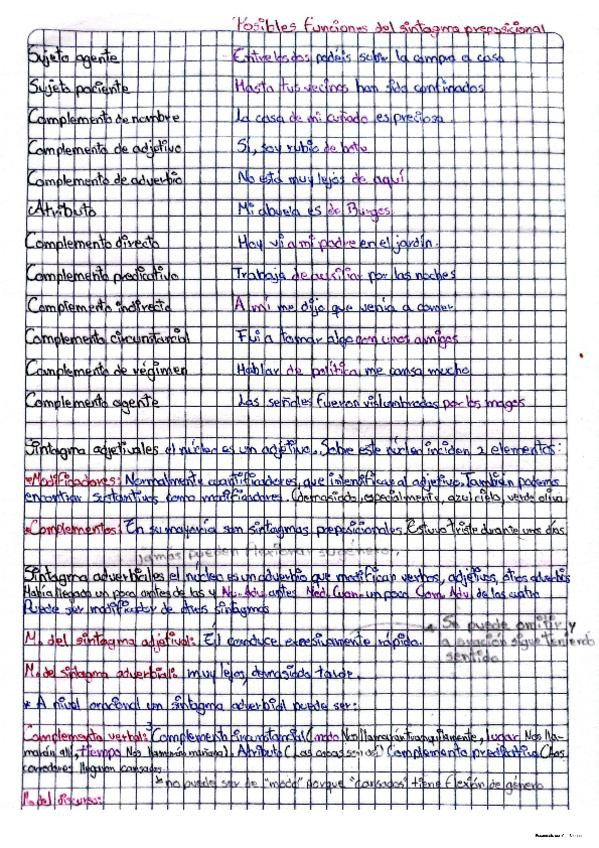 Posibles funciones del sintagma preposicional
Sujeto agente Entre los dos podéis subir la compra a casa
Sujeto paciente Hasta tus vecinos han sido confinados
Complemento de nombre La casa de mi cuñado es preciosa.
Complemento de adjetivo Sí, soy rubio de bote
Complemento de adverbio No está muy lejos de aquí
Atributo Mi abuela es de Burgos
Complemento directo Hoy vi a mi padre en el jardín.
Complemento predicativo Trabaja de auxiliar por las noches
Complemento indirecto A mí me dijo que venía a comer
Complemento circunstancial Fui a tomar algo con unos amigos
Complemento de régimen Hablar de política me cansa mucho
Complemento agente Las señales fueron vislumbradas por los magos
Sintagma adjetivales el núcleo es un adjetivo. Sobre este núcleo inciden 2 elementos:
•Modificadores: Normalmente cuantificadores, que intensifican al adjetivo. También podemos
encontrar sustantivos como modificadores. (demasiado, especialmente, azul cielo, verde oliva
•Complementos: En su mayoría son sintagmas preposicionales. Estuvo triste durante unos días.
jamás pueden flexionar su género.
Sintagma adverbiales el núcleo es un adverbio que modifican verbos, adjetivos, otros adverbios
Había llegado un poco antes de las 4 Nu. Adv. antes Mod. Cuan. un poco Com. Adv. de las cuatro
Puede ser modificador de otros sintagmas
M. del sintagma adjetival: Él conduce excesivamente rápido.
Se puede omitir y
la oración sigue teniendo
sentido
M. del sintagma adverbial: muy lejos, demasiado tarde.
* A nivel oracional un sintagma adverbial puede ser:
Complemento verbal: Complemento circunstancial (modo Nos llamarán tranquilamente, lugar Nos lla-
marán allí, tiempo Nos llamarán mañana). Atributo (Las cosas son así) Complemento predicativo (Los
corredores llegaron cansados.
*no puede ser de "modo" porque "cansados" tiene flexión de género
M. del discurso: